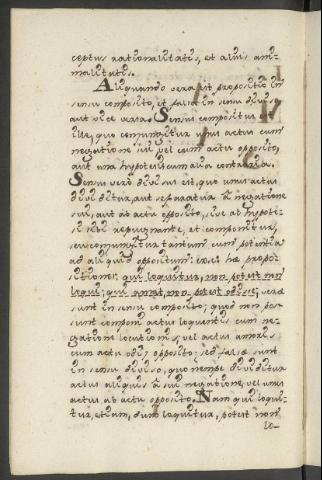 ceptus rationalitatis, et alius ani-
malitatis.
Aliquando vera est propositio in
sensu composito, et falsa in sensu diviso,
aut vice versa. Sensus compositus est
ille, quo conjungitur unus actus cum
negatione sui, vel cum actu opposito,
aut una hypothesis cum alia contraria.
Sensus vero divisus est, quo unus actus
dividitur, aut separatur a negatione
sui, aut ab actu opposito, sive ab hypote-
si sibi repugnante, et componitur,
seu conjungitur tantum cum potentia
ad aliquid oppositum: hæ propo-
sitiones: qui loquitur, non potest non
loqui; qui amat, non potest odisse; veræ
sunt in sensu composito; quod non pos-
sunt componi actus loquentis cum ne-
gatione locutionis; vel actus amoris
cum actu odij opposito: sed falsæ sunt
in sensu diviso, quo nempe dividitur
actus aliquis a sui negatione, vel unus
actus ab actu opposito. Nam qui loqui-
tur, etiam, dum loquitur, potest non
lo-